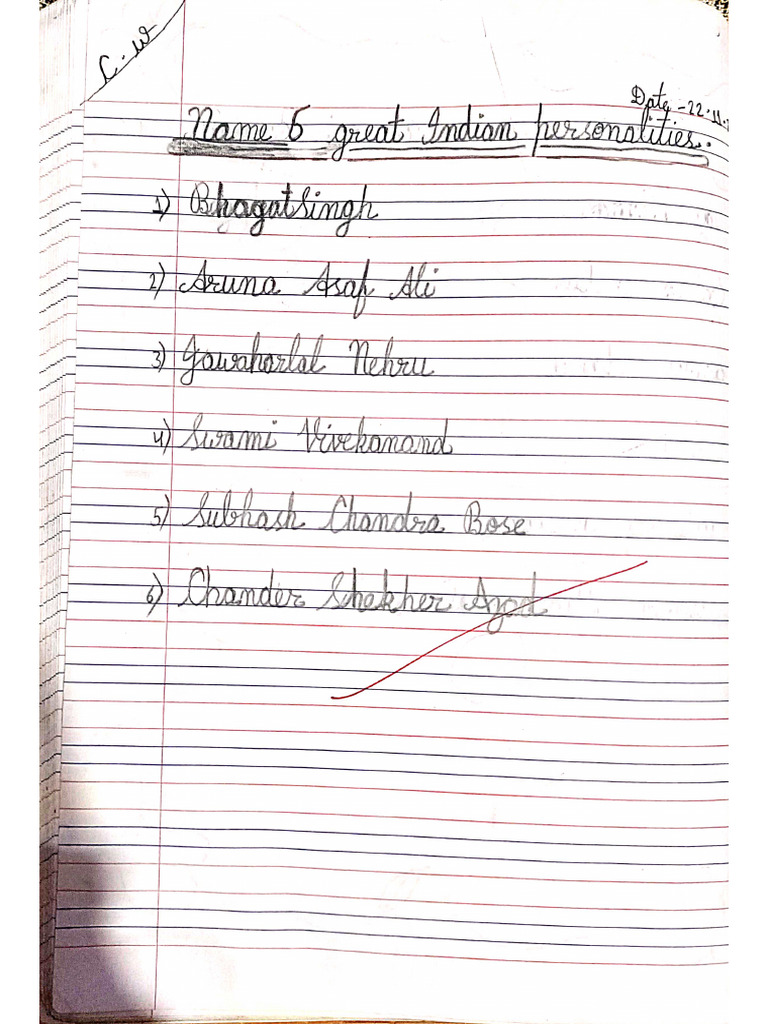 C.W
Date - 22.11.
Name 6 great Indian personalities.
1) Bhagat Singh
2) Aruna Asaf Ali
3) Jawaharlal Nehru
4) Swami Vivekanand
5) Subhash Chandra Bose
6) Chander Shekher Azad